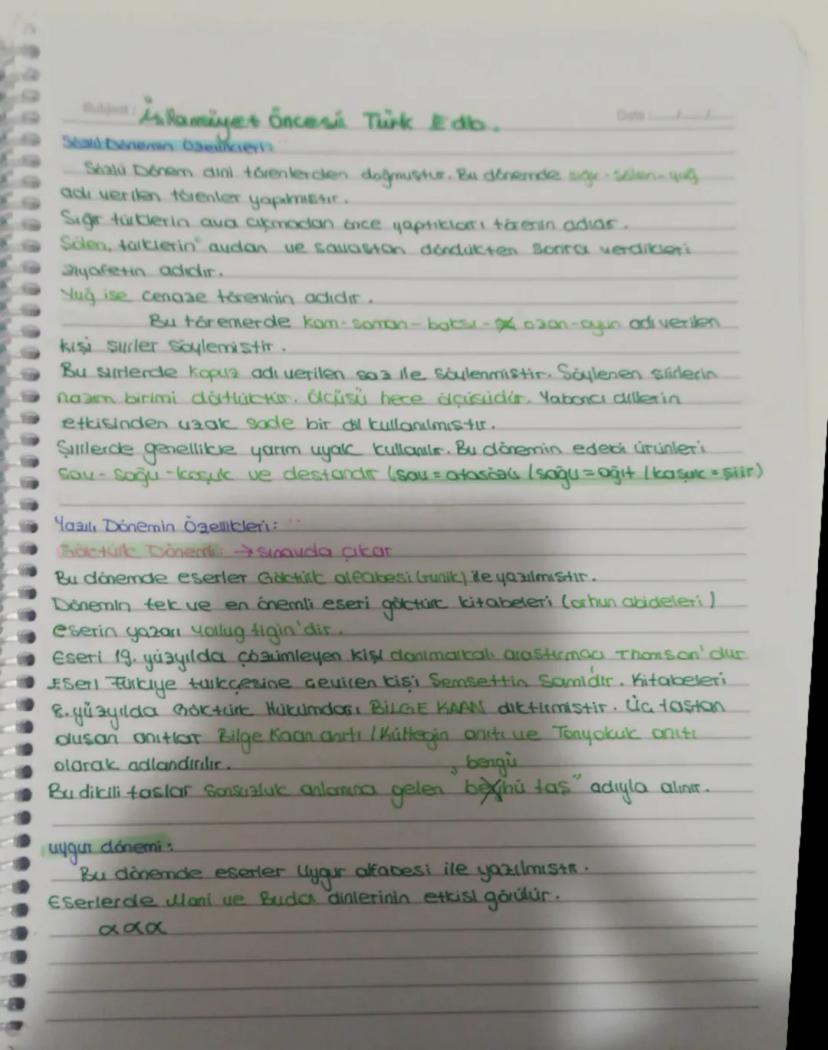 Subject: İslamiyet Öncesi Türk Edb. Date :..../..../....
Sözlü Dönemin Özellikleri:
Sözlü Dönem dini törenlerden doğmuştur. Bu dönemde sığır-şölen-yuğ
adı verilen törenler yapılmıştır.
Sığır türklerin ava çıkmadan önce yaptıkları törenin adıdır.
Şölen, türklerin avdan ve savaştan döndükten sonra verdikleri
ziyafetin adıdır.
Yuğ ise cenaze töreninin adıdır.
Bu törenlerde kam-şaman-baksı- ozan-oyun adı verilen
kişi şiirler söylemiştir.
Bu şiirlerde kopuz adı verilen saz ile söylenmiştir. Söylenen şiirlerin
nazım birimi dörtlüktür. ölçüsü hece ölçüsüdür. Yabancı dillerin
etkisinden uzak sade bir dil kullanılmıştır.
Şiirlerde genellikle yarım uyak kullanılır. Bu dönemin edebi ürünleri
sav-sagu-koşuk ve destandır (sav=atasözü / sağu=ağıt / koşuk=şiir)
Yazılı Dönemin Özellikleri:
Göktürk Dönemi: → sınavda çıkar
Bu dönemde eserler Göktürk alfabesi (runik) ile yazılmıştır.
Dönemin tek ve en önemli eseri göktürk kitabeleri (orhun abideleri)
eserin yazarı yollug tigin'dir.
Eseri 19. yüzyılda çözümleyen kişi danimarkalı araştırmacı Thomson'dur
Eseri Türkiye türkçesine çeviren kişi Şemsettin Samidir. Kitabeleri
8. yüzyılda Göktürk Hükümdarı BİLGE KAAN diktirmiştir. Üç taştan
oluşan anıtlar Bilge Kaan anıtı / Kültegin anıtı ve Tonyokuk anıtı
olarak adlandırılır.
bengü
Bu dikili taşlar sonsuzluk anlamına gelen " taş" adıyla alınır.
uygur dönemi:
Bu dönemde eserler Uygur alfabesi ile yazılmıştır.
Eserlerde Mani ve Buda dinlerinin etkisi görülür.